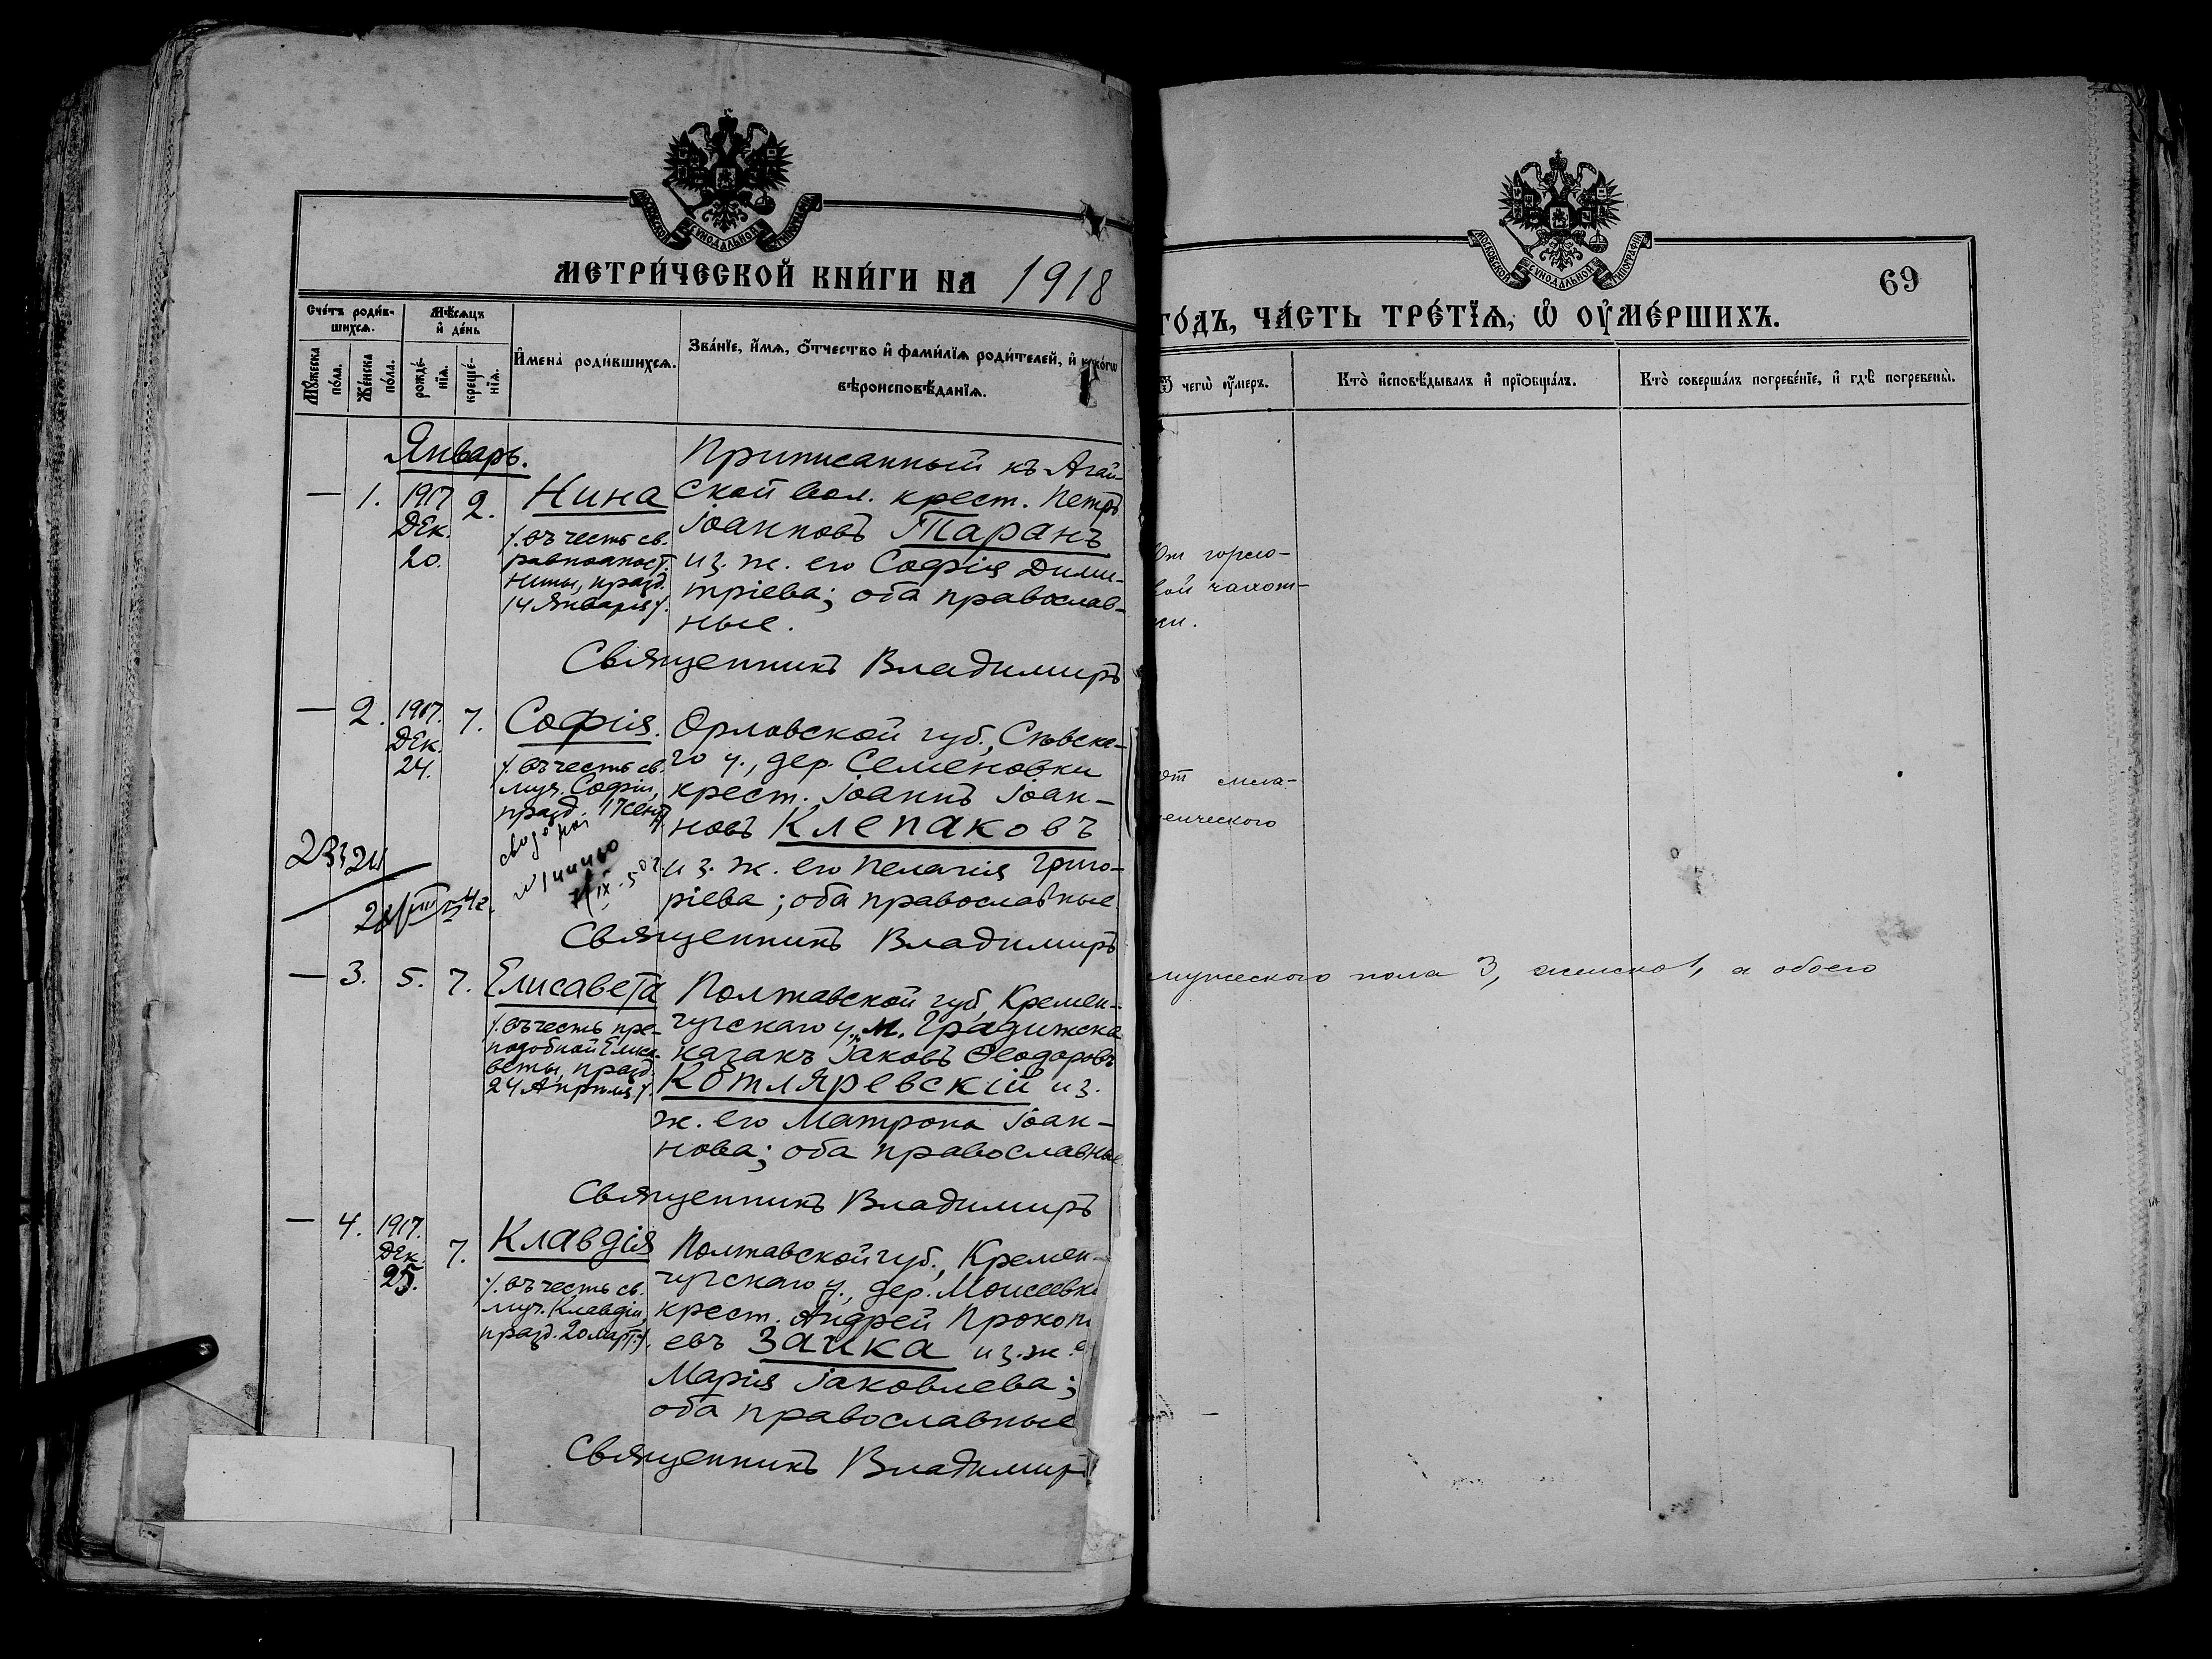 МОСКОВСКОЙ СѴНОДАЛЬНОЙ ТИПОГРАФІИ
МЕТРИ́ЧЕСКОЙ КНИ́ГИ НА 1918
Сче́тъ роди́в-
шихсѧ.
Мѣ́сѧцъ
и҆ де́нь
Мꙋ́жеска
по́ла.
Же́нска
по́ла.
рожде́-
нїѧ.
креще́-
нїѧ.
И҆мена̀ роди́вшихсѧ.
Зва́нїе, и҆́мѧ, ѻ҆́тчество и҆ фами́лїѧ роди́телей, и҆ како́гѡ
вѣроисповѣ́данїѧ.
Январь.
— 1. 1917 Дек. 20. 2.
Нина
/. въ честь св.
равноапост.
Нины, празд.
14 Января /.
Приписанный къ Агай-
ской вол. крест. Петръ
Іоанновъ Таранъ
и з. ж. его Софія Дими-
тріева; оба православ-
ные.
Священникъ Владимиръ
— 2. 1917. Дек. 24. 7.
Софія.
/. въ честь св.
муч. Софіи,
празд. 17 Сент /.
Орловской губ., Сѣвска-
го у., дер. Семеновки
крест. Іоаннъ Іоан-
новъ Клепаковъ
и з. ж. его Пелагія Григо-
ріева; оба православные
Священникъ Владимиръ
— 3. 5. 7.
Елисавета
/. въ честь пре-
подобной Елиса-
веты, празд.
24 Апрѣля /.
Полтавской губ, Кремен-
чугскаго у., м. Градижска
казакъ Іаковъ Ѳеодоровъ
Котляревскій и з.
ж. его Матрона Іоан-
нова; оба православные
Священникъ Владимиръ
— 4. 1917. Дек. 25. 7.
Клавдія
/. въ честь св.
муч. Клавдіи,
празд. 20 март. /.
Полтавской губ., Кремен-
чугскаго у., дер. Моисеевки
крест. Андрей Прокопі
евъ Заика и з. ж. е
Марія Іаковлева;
оба православные
Священникъ Владимиръ
МОСКОВСКОЙ СѴНОДАЛЬНОЙ ТИПОГРАФІИ
69
ГО́ДЪ, ЧА́СТЬ ТРЕ́ТЇѦ, Ѡ҆ ОУ҆МЕ́РШИХЪ.
Ѿ чегѡ̀ оу҆́меръ.
Кто̀ и҆сповѣ́дывалъ и҆ прїѡбща́лъ.
Кто̀ соверша́лъ погребе́нїе, и҆ гдѣ̀ погребены̀.
От горло-
вой чахот-
ки.
мужеского пола 3, женско 1, а обоего